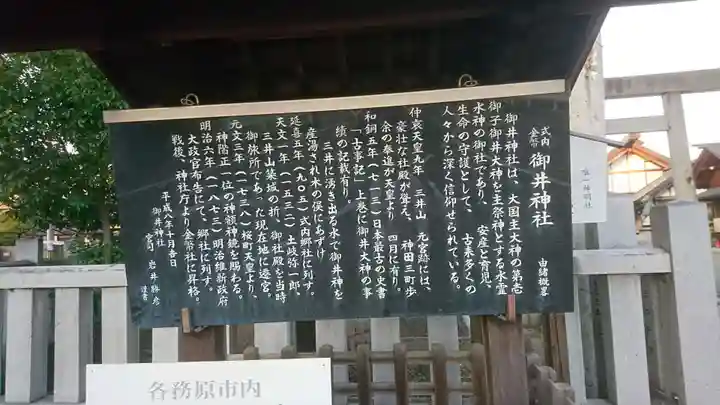 式内
金幣 御井神社 由緒概畧
御井神社は、大国主大神の第壱
御子御井大神を主祭神とする水霊
水神の御社であり、安産と育児、
生命の守護として、古来多くの
人々から深く信仰せられている。
仲哀天皇九年 三井山 元宮跡には、
豪壮な社殿が聳え、神田三町歩
余の奉進が天皇より 四月に有り。
和銅五年(七一三)日本最古の史書
「古事記」上巻に御井大神の事
績の記載有り。
三井に湧き出る水で御井神を
産湯され木の俣にあずけ
延喜五年(九〇五)式内郷社に列す。
天文一年(一五三二)土岐弥一郎、
三井山築城の折、御社殿を当時
御旅所であった現在地に遷宮。
元文三年(一七三八)桜町天皇より、
神階正一位の神額神鏡を賜わる。
明治六年(一八七三)明治維新政府
大政官布告にて、郷社に列す。
戦後、神社庁より金幣社に昇格。
平成八年十月吉日
御井神社
宮司 岩井
謹書
唯一神明社
各務原市内